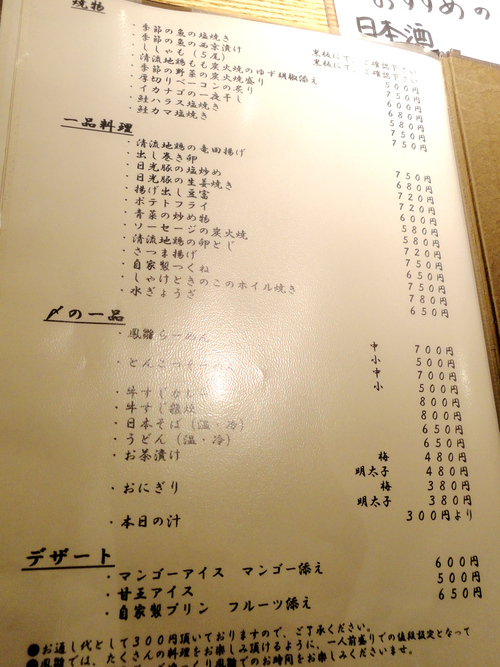 おすすめの
日本酒
焼物
・季節の魚の塩焼き 黒板にて、ご確認下さい
・季節の魚の西京漬け 黒板にて、ご確認下さい
・ししゃも（5尾） 500円
・清流地鶏もも炭火焼のゆず胡椒添え 750円
・季節の野菜の炭火焼盛り 600円
・厚切りベーコンの炙り 680円
・イカナゴの一夜干し 580円
・鮭ハラス塩焼き 750円
・鮭カマ塩焼き 750円
一品料理
・清流地鶏の竜田揚げ 750円
・出し巻き卵 680円
・日光豚の塩炒め 720円
・日光豚の生姜焼き 720円
・揚げ出し豆富 600円
・ポテトフライ 580円
・青菜の炒め物 580円
・ソーセージの炭火焼 720円
・清流地鶏の卵とじ 750円
・さつま揚げ 650円
・自家製つくね 750円
・しゃけときのこのホイル焼き 780円
・水ぎょうざ 650円
〆の一品
・鳳雛らーめん 中 700円
小 500円
・とんこつ 中 700円
小 500円
・牛すじカレー 800円
・牛すじ雑炊 800円
・日本そば（温・冷） 650円
・うどん（温・冷） 650円
・お茶漬け 梅 480円
明太子 480円
・おにぎり 梅 380円
明太子 380円
・本日の汁 300円より
デザート
・マンゴーアイス マンゴー添え 600円
・甘王アイス 500円
・自家製プリン フルーツ添え 650円
●お通し代として300円頂いておりますので、ご了承ください。
●鳳雛では、たくさんの料理をお楽しみ頂けるように、一人前盛りでの値段設定となって
鳳雛でのお時間をお楽しみくださいませ。